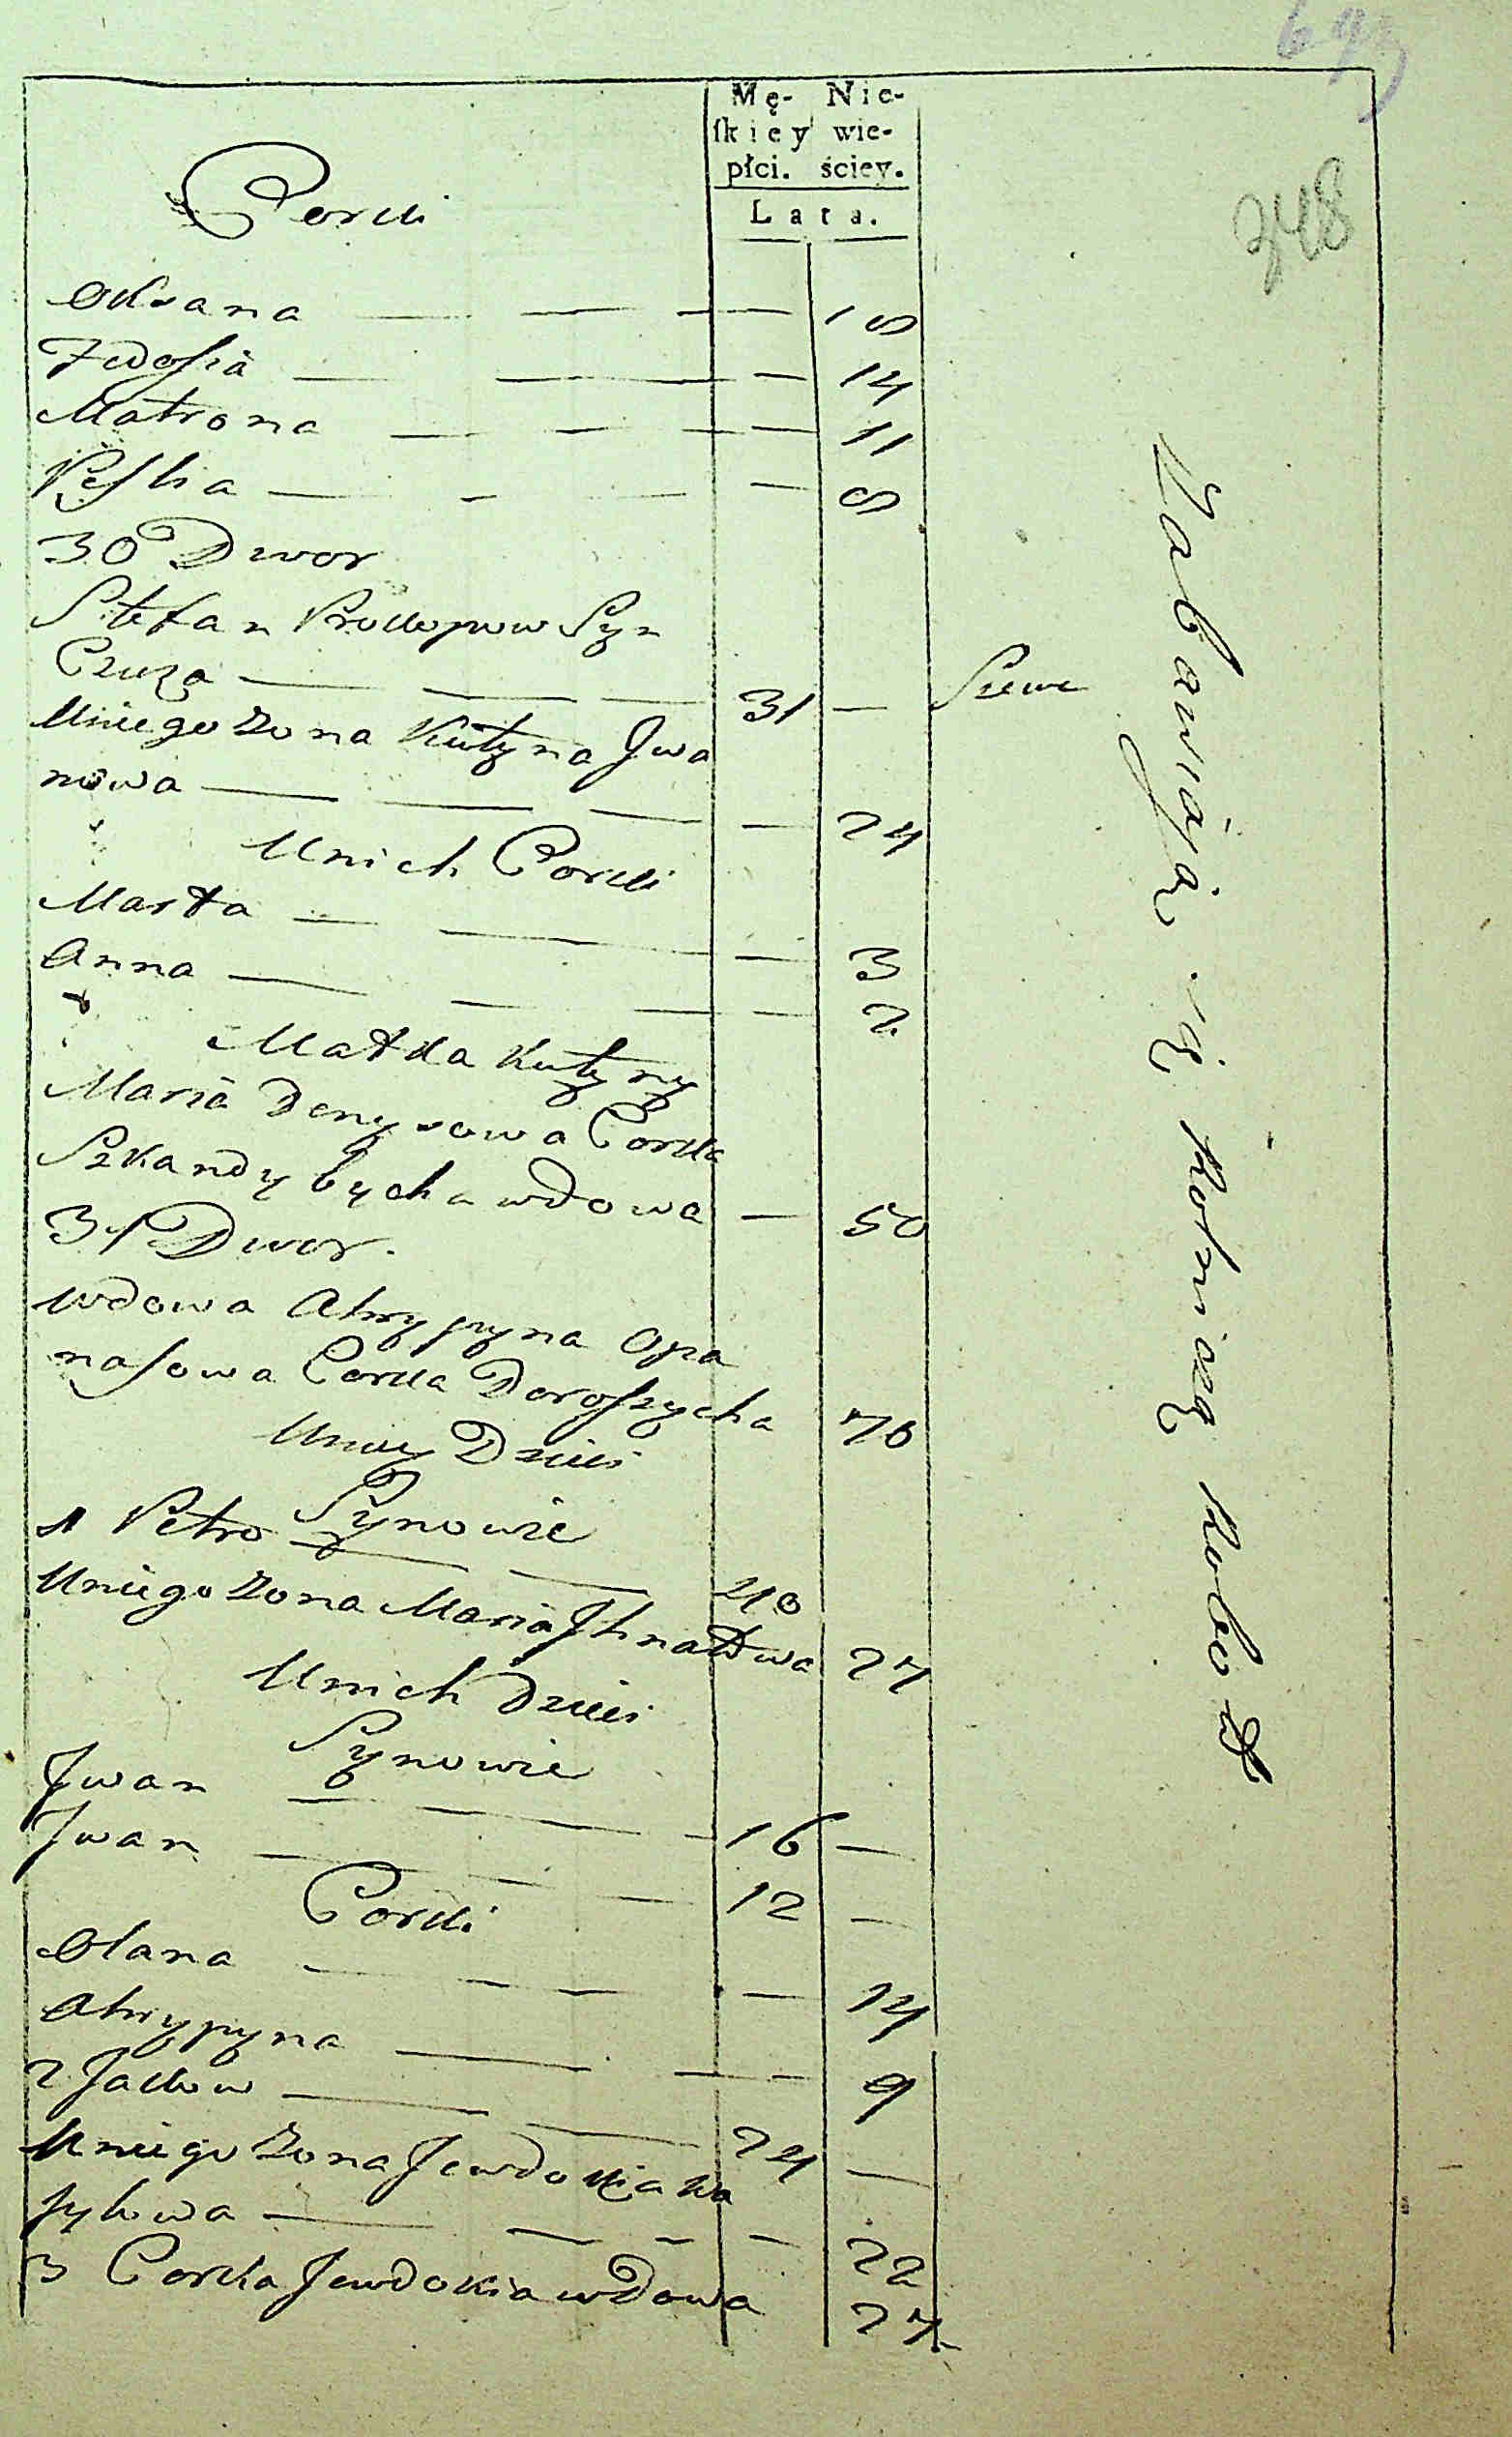 693
348
Mę- Nie-
skiey wie-
płci. ściey.
Lata.
Corki
Oksana — — — — 18
Fedosia — — — 14
Matrona — — — — 11
Peslia — — — — 8
30 Dwor
Stefan Prokopow Syn
Czuza — — — 31 — Szewc
Uniego Zona Katyna Jwa
nowa — — — — 24
Unich Corki
Marta — — — 3
Anna — — — — 2
Matka Katyny
Maria Denysowa Corka
Szkandybycha wdowa — 50
31 Dwor.
wdowa Ahrypyna Opa
nasowa Corka Doroszycha 70
Uniey Dzieci
Synowie
1 Petro — — 40
Uniego Zona Maria Jhnatowa 27
Unich Dzieci
Synowie
Jwan — — — 16 —
Jwan — — — 12 —
Corki
Olana — — — — 14
Ahrypyna — — — 9
2 Jackow — — 24 —
Uniego Zona Jewdokia Wa
sylowa — — — — 22
3 Corka Jewdokia wdowa 27
Zabawiaią się Rolniczą Robotą